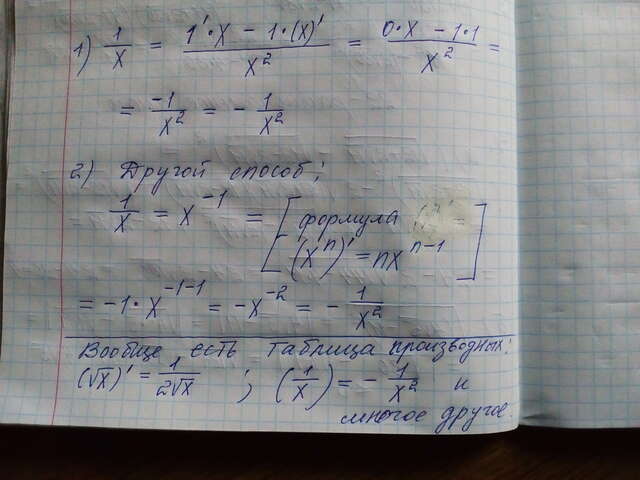 1) 1/x = (1'·x − 1·(x)')/x² = (0·x − 1·1)/x² =
= −1/x² = − 1/x²
2) Другой способ:
1/x = x⁻¹ = [формула
(xⁿ)' = nxⁿ⁻¹]
= −1·x⁻¹⁻¹ = −x⁻² = − 1/x²
Вообще есть таблица производных:
(√x)' = 1/2√x ; (1/x) = − 1/x² и
многое другое